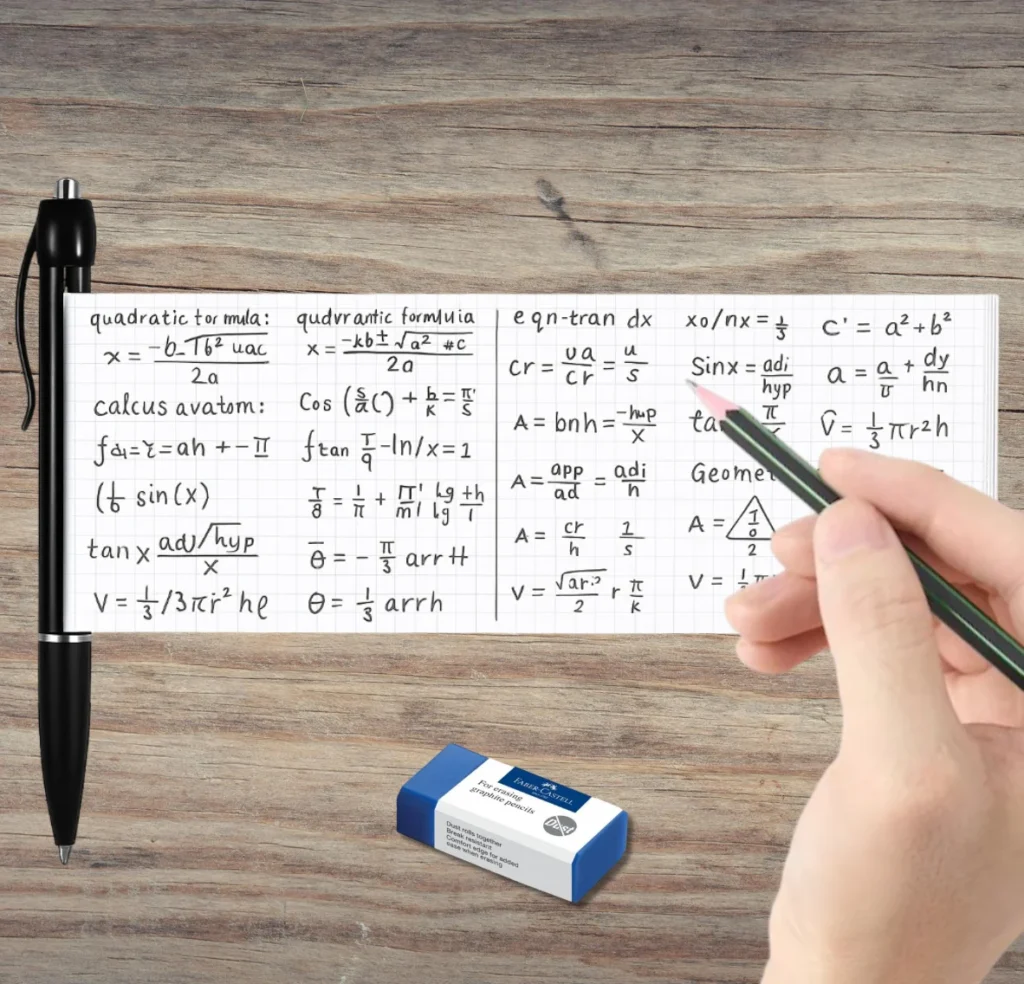 quadratic tor mula:
x = -b-Tb² uac / 2a
calcus avatom:
(1/6 sin(x)
tan x adJ/hyp / x
V = 1/3 /3πr² he
qudvrantic formjuia
x = -kb± √a² #c / 2a
Cos (s/a() + b/k = π'/s
f tan T/9 -ln/x=1
T/8 = 1/π + π'/m1 lg/lg +h/1
θ̅ = - π/3 arr H
θ = 1/3 arrh
e qn-tran dx
cr = va/cr = u/s
A = bnh = -hup/x
A = app/ad = adi/h
A = cr/h 1/s
V = √ar.² / 2 r π/k
xo/nx = 1/3
Sinx = adi/hyp
ta
Geomet
A = 1/0 2
V =
c' = a²+b²
a = a/v + dy/hn
V̂ = 1/3 πr²h
FABER-CASTELL
For erasing
graphite pencils
Dust
Dust rolls together
Break resistant
Comfort edge for added
ease when erasing